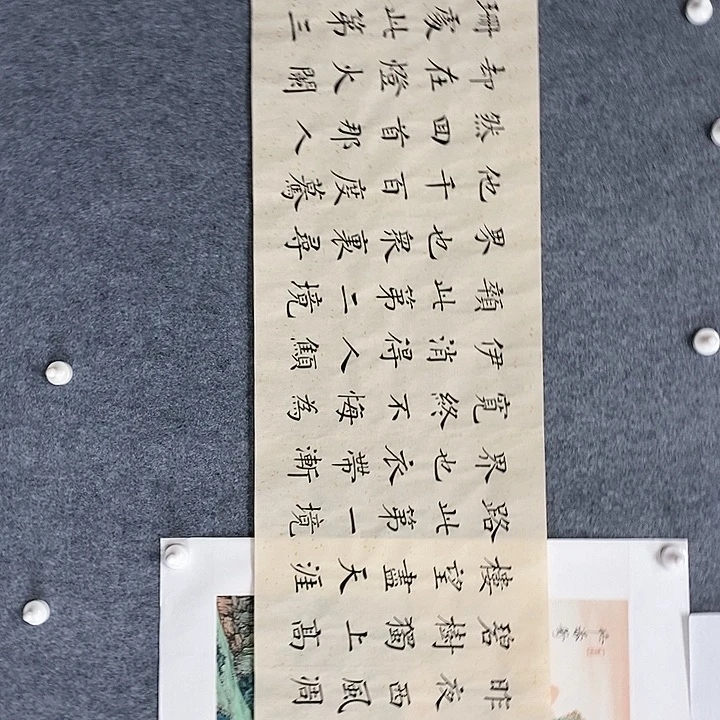 昨夜西風凋
碧樹獨上高
樓望盡天涯
路此第一境
界也衣帶漸
寬終不悔為
伊消得人顦
顇此第二境
界也衆裏尋
他千百度驀
然回首那人
却在燈火闌
珊處此第三